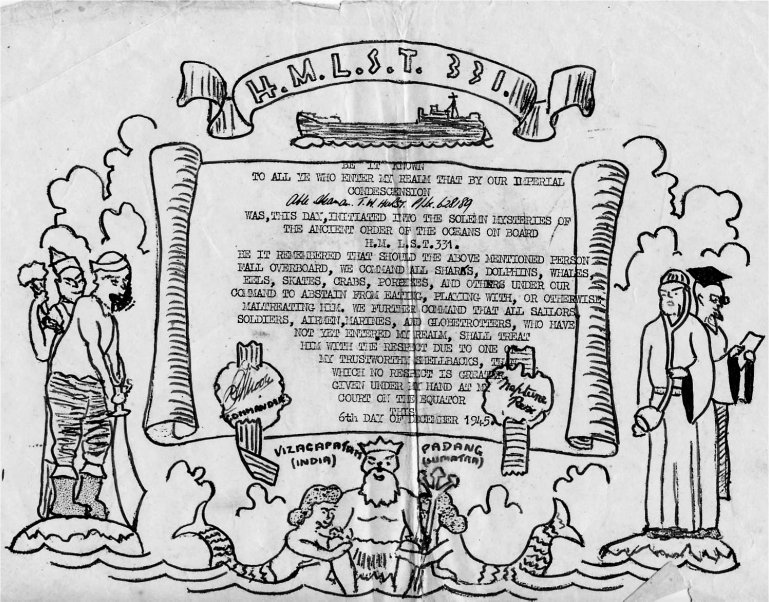 H.M.L.S.T. 331.
BE IT KNOWN
TO ALL YE WHO ENTER MY REALM THAT BY OUR IMPERIAL
CONDESCENSION
Able Seaman T.W.
WAS, THIS DAY, INITIATED INTO THE SOLEMN MYSTERIES OF
THE ANCIENT ORDER OF THE OCEANS ON BOARD
H.M. L.S.T.331.
BE IT REMEMBERED THAT SHOULD THE ABOVE MENTIONED PERSON
FALL OVERBOARD, WE COMMAND ALL SHARKS, DOLPHINS, WHALES,
EELS, SKATES, CRABS, PORPOISES, AND OTHERS UNDER OUR
COMMAND TO ABSTAIN FROM EATING, PLAYING WITH, OR OTHERWISE
MALTREATING HIM. WE FURTHER COMMAND THAT ALL SAILORS
SOLDIERS, AIRMEN, MARINES, AND GLOBETROTTERS, WHO HAVE
NOT YET ENTERED MY REALM, SHALL TREAT
HIM WITH THE RESPECT DUE TO ONE OF
MY TRUSTWORTHY SHELLBACKS,
WHICH NO RESPECT IS GREATER
GIVEN UNDER MY HAND AT MY
COURT ON THE EQUATOR
THIS
6th DAY OF DECEMBER 1945
COMMANDER
Neptune
Rex
VIZAGAPATAM
(INDIA)
PADANG
(SUMATRA)